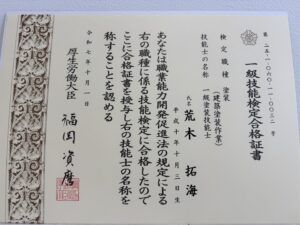 第二五-一-〇六〇-一一-〇〇三二号
一級技能検定合格証書
検定職種 塗装
(建築塗装作業)
技能士の名称 一級塗装技能士
氏名 荒木 拓海
平成十年十月三日生
あなたは職業能力開発促進法の規定による
右の職種に係る技能検定に合格したので
ここに合格証書を授与し右の技能士の名称を
称することを認める
令和七年十月一日
厚生労働大臣 福岡 資麿